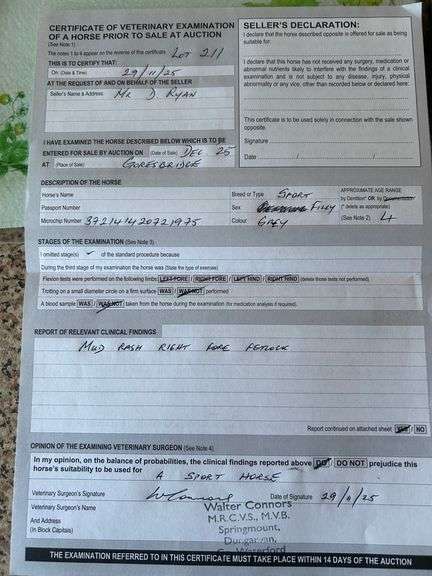 CERTIFICATE OF VETERINARY EXAMINATION
OF A HORSE PRIOR TO SALE AT AUCTION
(See Note 1)
The notes 1 to 4 appear on the reverse of this certificate LOT 211
THIS IS TO CERTIFY THAT:
On (Date & Time) 29/11/25
AT THE REQUEST OF AND ON BEHALF OF THE SELLER
Seller's Name & Address: MR D. RYAN
I HAVE EXAMINED THE HORSE DESCRIBED BELOW WHICH IS TO BE
ENTERED FOR SALE BY AUCTION ON (Date of Sale) DEC 25
AT (Place of Sale) GORESBRIDGE
SELLER'S DECLARATION:
I declare that the horse described opposite is offered for sale as being
suitable for:
I declare that this horse has not received any surgery, medication or
abnormal nutrients likely to interfere with the findings of a clinical
examination and is not subject to any disease, injury, physical
abnormality or any vice, other than recorded below or declared here:
This certificate is to be used solely in connection with the sale shown
opposite.
Signature
Date
DESCRIPTION OF THE HORSE
Horse's Name
Passport Number
Microchip Number 372141420721975
Breed or Type SPORT
Sex FILLY
Colour GREY
APPROXIMATE AGE RANGE
by Dentition* OR by Documentation*
(* delete as appropriate)
(See Note 2) 4
STAGES OF THE EXAMINATION (See Note 3)
I omitted stage(s) of the standard procedure because
During the third stage of my examination the horse was (State the type of exercise)
Flexion tests were performed on the following limbs LEFT FORE / RIGHT FORE / LEFT HIND / RIGHT HIND (delete those tests not performed)
Trotting on a small diameter circle on a firm surface WAS / WAS NOT performed
A blood sample WAS / WAS NOT taken from the horse during the examination (for medication analysis if required).
REPORT OF RELEVANT CLINICAL FINDINGS
MUD RASH RIGHT FORE FETLOCK
Report continued on attached sheet YES / NO
OPINION OF THE EXAMINING VETERINARY SURGEON (See Note 4)
In my opinion, on the balance of probabilities, the clinical findings reported above DO / DO NOT prejudice this
horse's suitability to be used for
A SPORT HORSE
Veterinary Surgeon's Signature W Connors Date of Signature 29/11/25
Veterinary Surgeon's Name
And Address
(In Block Capitals)
Walter Connors
M.R.C.V.S., M.V.B.
Springmount,
Dungarvan,
Co. Waterford
THE EXAMINATION REFERRED TO IN THIS CERTIFICATE MUST TAKE PLACE WITHIN 14 DAYS OF THE AUCTION